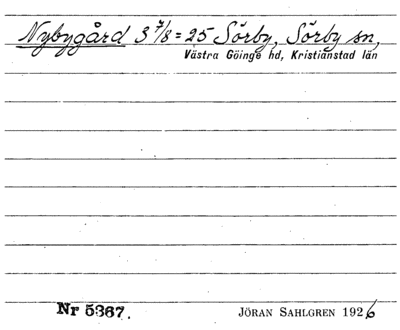 Nybygård 3 7/8 = 25 Sörby, Sörby sn,
Västra Göinge hd, Kristianstad län
Nr 5367.
JÖRAN SAHLGREN 1926